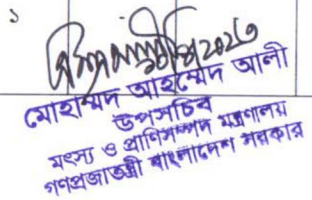 ১
মোহাম্মদ আহম্মেদ আলী
উপসচিব
মৎস্য ও প্রাণিসম্পদ মন্ত্রণালয়
গণপ্রজাতন্ত্রী বাংলাদেশ সরকার